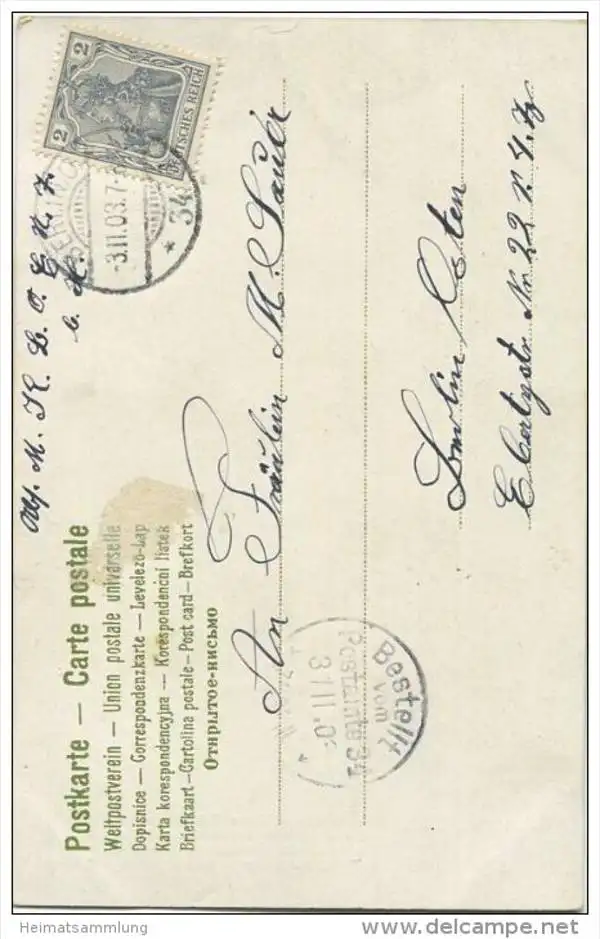 Postkarte — Carte postale
Weltpostverein — Union postale universelle
Dopisnice — Correspondenzkarte — Levelező-Lap
Karta korespondencyjna — Korespondenční lístek
Briefkaart — Cartolina postale — Post card — Brefkort
Открытое-письмо
Abs. M. K. B.
2
2
DEUTSCHES REICH
BERLIN
3.11.03.7-
* 34
An Fräulein M. Sauer
Berlin Osten
Ebertystr. Nr 22
Bestellt
vom
Postamte 34
3/11.0
Heimatsammlung
delcampe.net